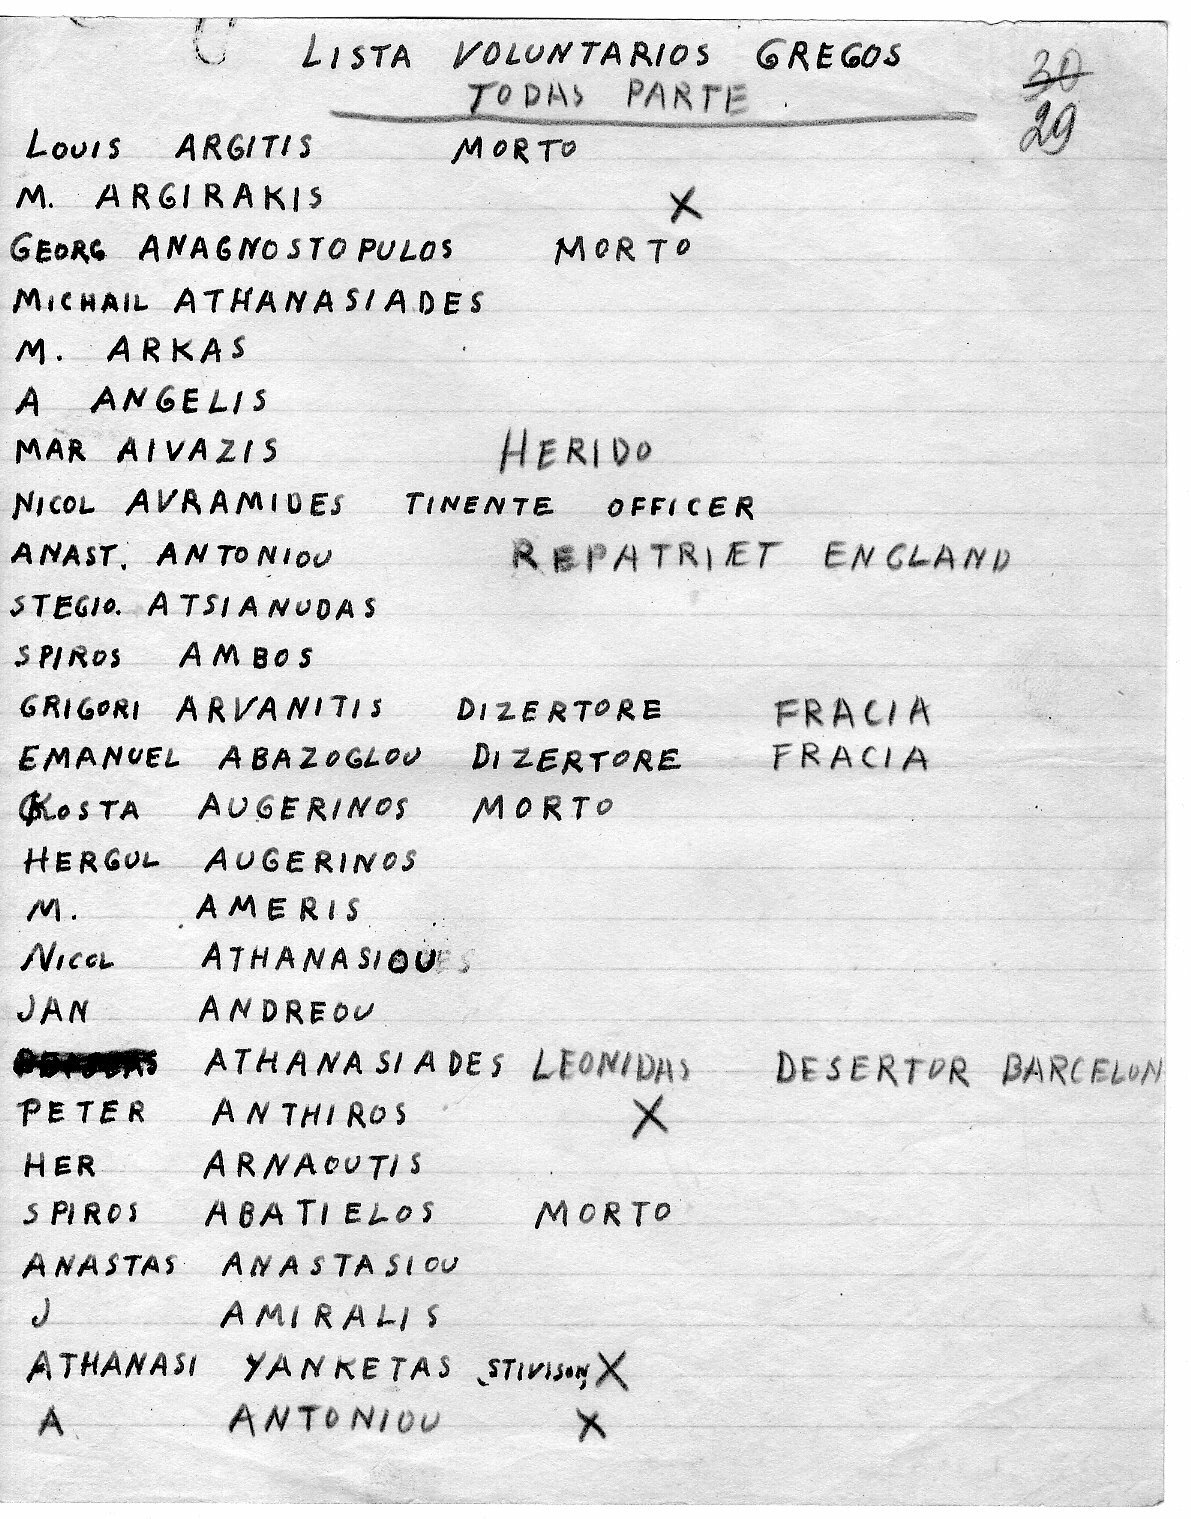 LISTA VOLUNTARIOS GREGOS
TODAS PARTE.
30
29
LOUIS ARGITIS MORTO
M. ARGIRAKIS X
GEORG ANAGNOSTOPULOS MORTO
MICHAIL ATHANASIADES
M. ARKAS
A ANGELIS
MAR AIVAZIS HERIDO
NICOL AVRAMIDES TINENTE OFFICER
ANAST. ANTONIOU REPATRIET ENGLAND
STEGIO. ATSIANUDAS
SPIROS AMBOS
GRIGORI ARVANITIS DIZERTORE FRACIA
EMANUEL ABAZOGLOU DIZERTORE FRACIA
KOSTA AUGERINOS MORTO
HERGUL AUGERINOS
M. AMERIS
NICOL ATHANASIOU
JAN ANDREOU
ATHANASIADES LEONIDAS DESERTOR BARCELON
PETER ANTHIROS X
HER ARNAOUTIS
SPIROS ABATIELOS MORTO
ANASTAS ANASTASIOU
J AMIRALIS
ATHANASI YANKETAS STIVISON X
A ANTONIOU X